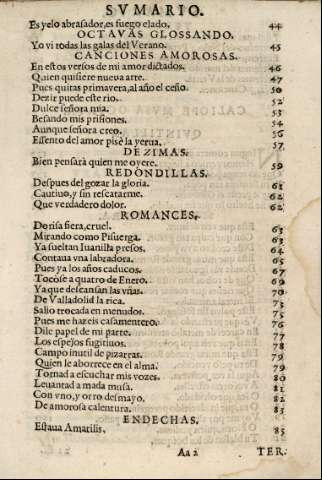 SVMARIO.
Es yelo abrasador, es fuego elado. 44
OCTAVAS GLOSSANDO.
Yo vi todas las galas del Verano. 45
CANCIONES AMOROSAS.
En estos versos de mi amor dictados. 46
Quien quisiere nueva arte. 47
Pues quitas primavera, al año el ceño. 50
Dezir puede este rio. 52
Dulce señora mia. 53
Besando mis prisiones. 54
Aunque señora creo. 56
Essento del amor pisè la yerua. 57
DEZIMAS.
Bien pensarà quien me oyere. 59
REDONDILLAS.
Despues del gozar la gloria. 61
Cautiuo, y sin rescatarme. 62
Que verdadero dolor. 62
ROMANCES.
Dorisa fiera, cruel. 63
Mirando como Pisuerga. 63
Ya sueltan Iuanilla presos. 64
Contaua vna labradora. 65
Pues ya los años caducos. 67
Tocòse a quatro de Enero. 69
Ya que descansan las vñas. 70
De Valladolid la rica. 73
Salio trocada en menudos. 75
Pues me hazeis casamentero. 76
Dile papel de mi parte. 77
Los espejos fugitiuos. 78
Campo inutil de pizarras. 79
Quien le aborrece en el alma. 79
Tornad a escuchar mis vozes. 80
Leuantad a mada musa. 81
Con vno, y otro desmayo. 82
De amorosa calentura. 83
ENDECHAS.
Estaua Amarilis. 85
Aa 2 TER-